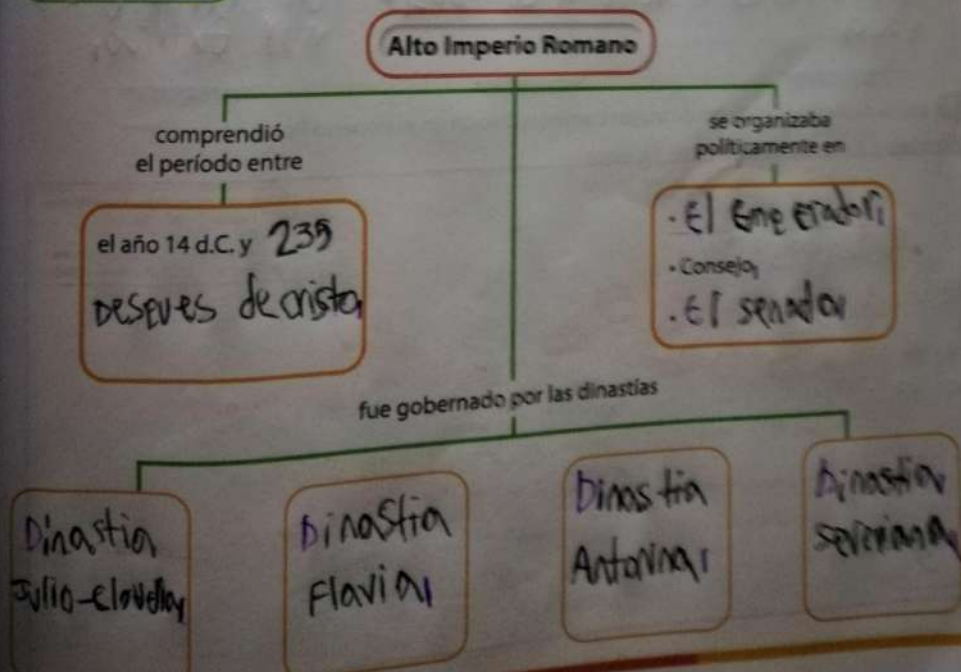 Alto Imperio Romano
comprendió
el período entre
el año 14 d.C. y 235
Despues de cristo,
se organizaba
políticamente en
· El Emperador,
• Consejo,
· El senado
fue gobernado por las dinastías
Dinastia
Julio-Claudia,
Dinastia
Flavia,
Dinastia
Antonina,
Dinastia
severiana,